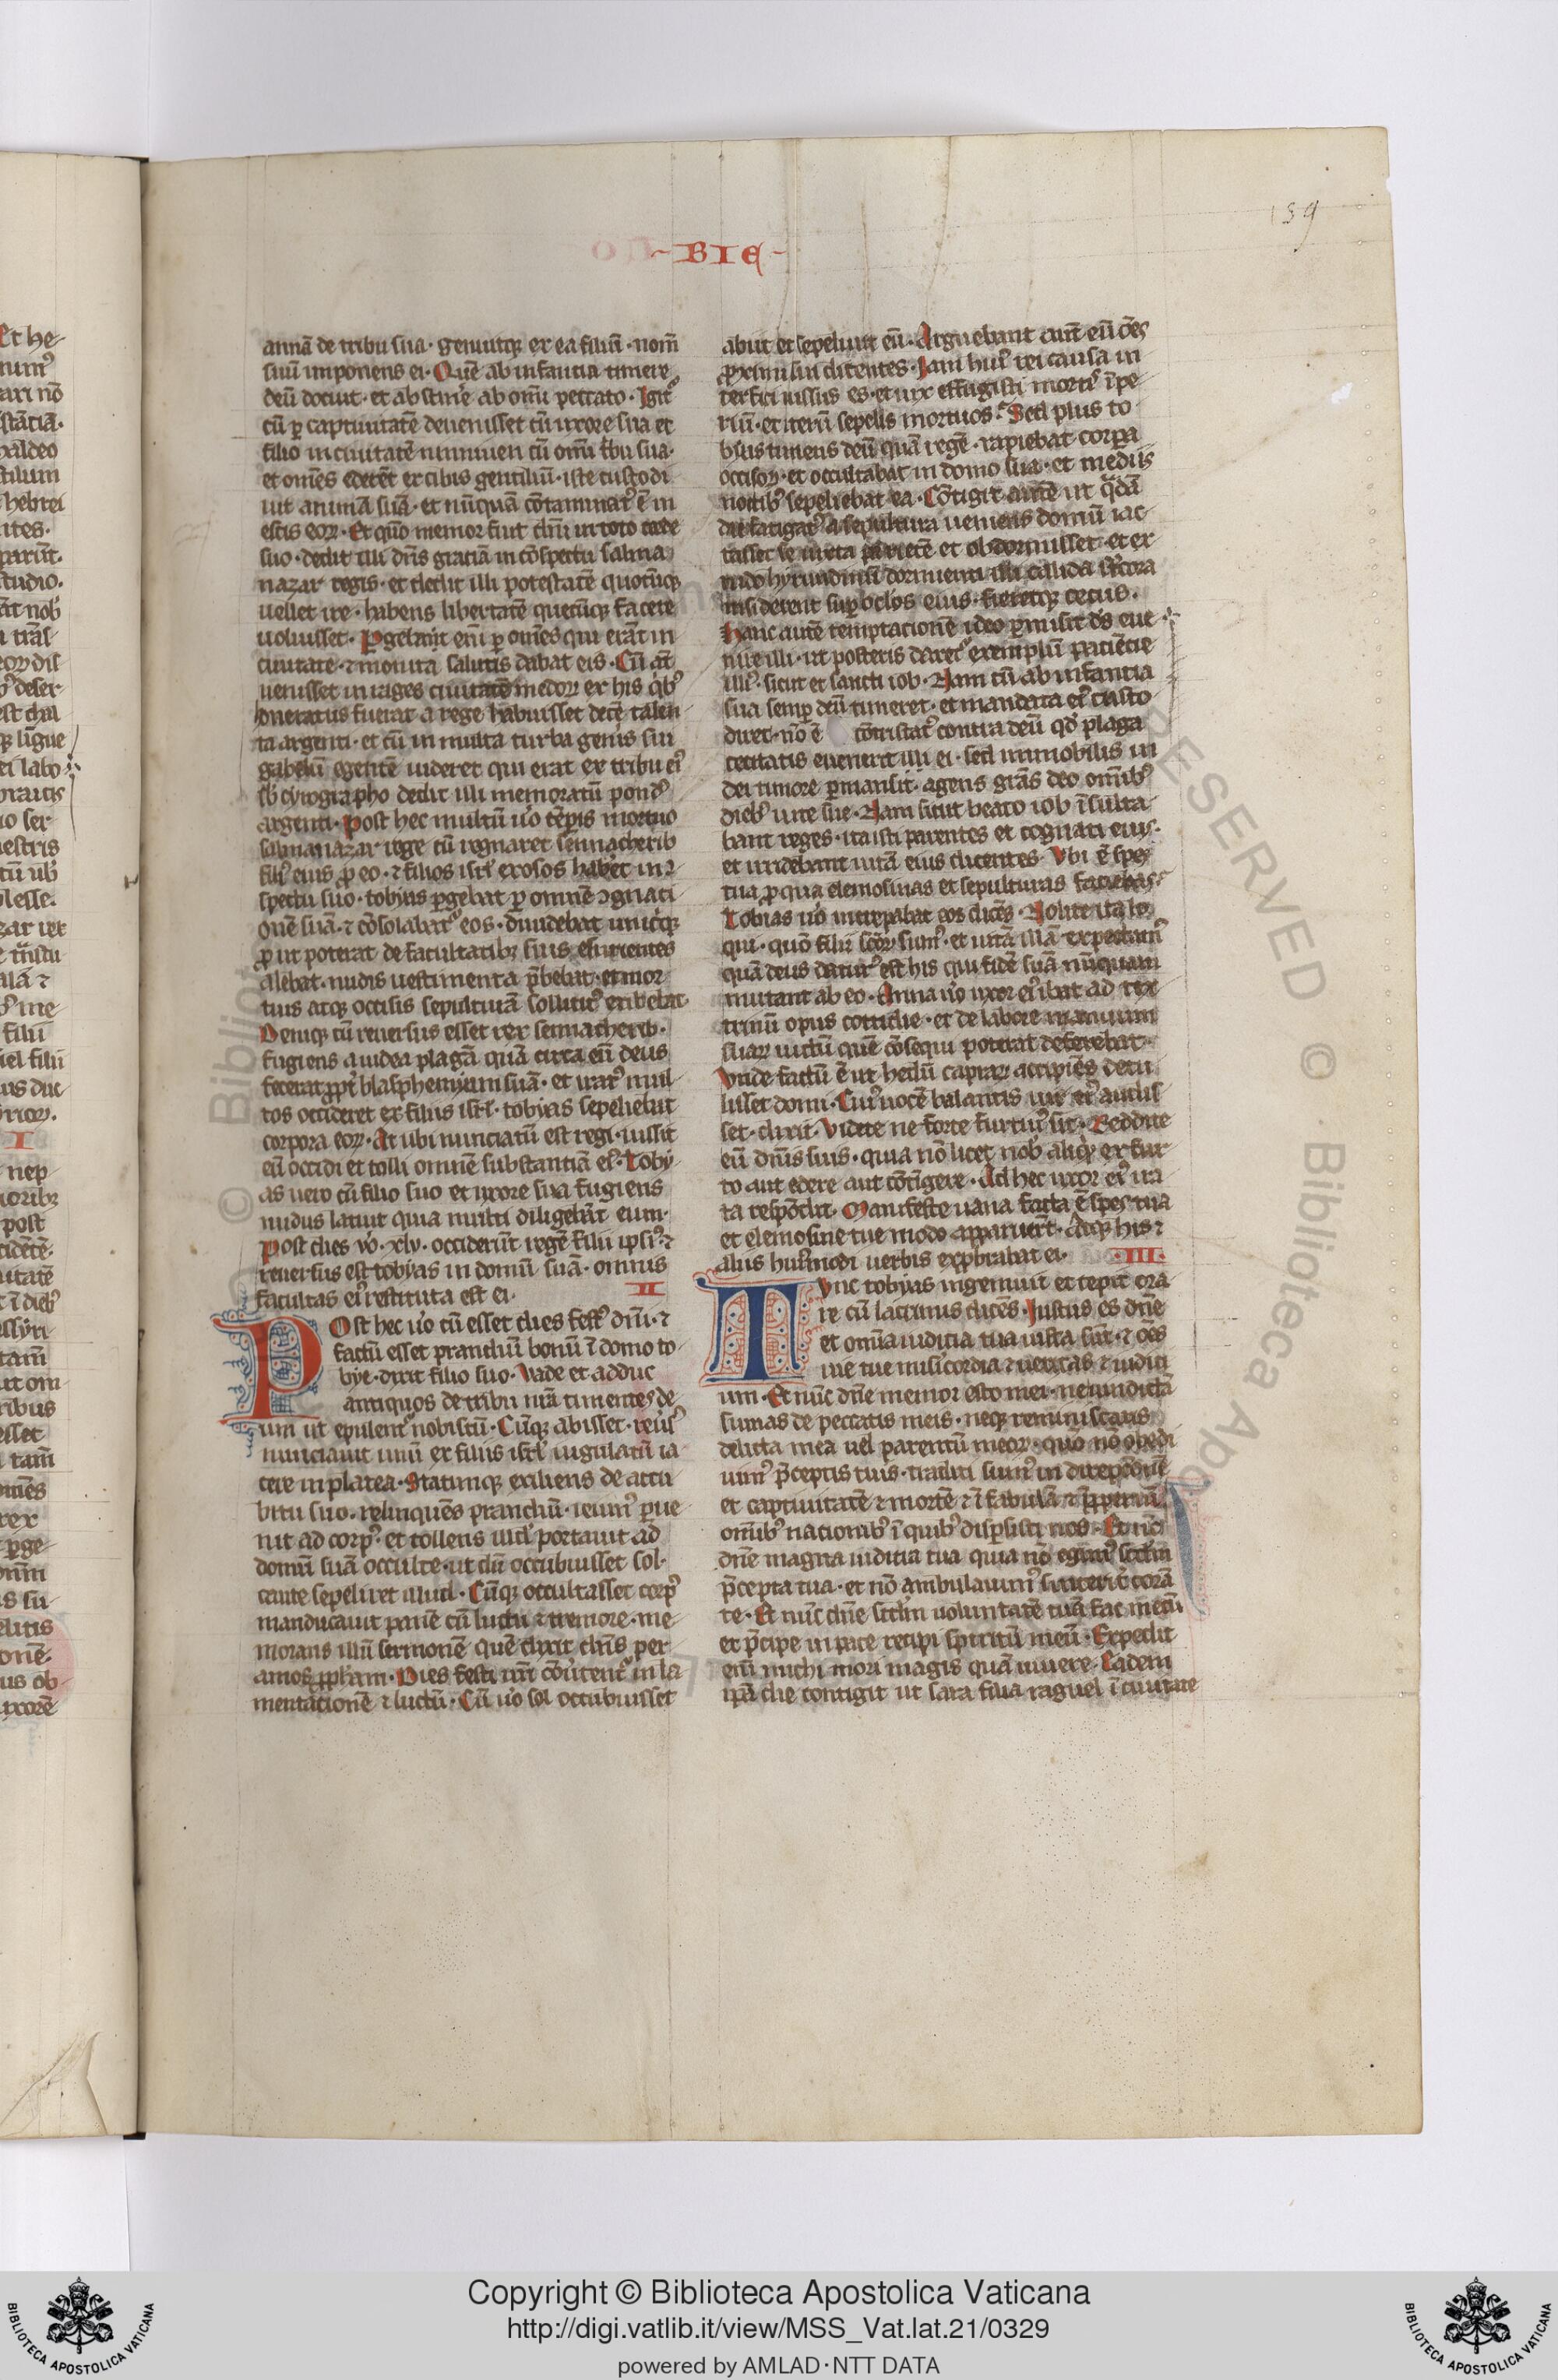 159
BIE
annā de tribu sua· genuitqꝫ ex ea filiū· nom̄
suū imponens ei· Quē ab infantia timere
deū docuit· et abstin̄e ab om̄i peccato· Igit᷑
cū ꝑ captiuitatē deuenisset cū uxore sua et
filio in ciuitatē niniuen cū om̄i tbu sua·
et om̄es ederēt ex cibis gentiliū· iste custodi
uit animā suā· et nūquā cōtaminat᷒ ē in
escis eoꝝ· Et quō memor fuit dn̄i in toto corde
suo· dedit illi dn̄s gratiā in cōspectu salma
nazar regis· et dedit illi potestatē quocūqꝫ
uellet ire· habens libertatē quecūqꝫ facere
uoluisset· Pgebat eni ꝑ om̄es qui erāt in
ciuitate· ⁊ monita salutis dabat eis· Cū at̄
uenisset in rages ciuitatē medoꝝ ex his qͥb᷒
honeratus fuerat a rege habuisset decē talen
ta argenti· et cū in multa turba gen̄is sui
gabelū egentē uideret qui erat ex tribu ei᷒
sb cyrographo dedit illi memoratū pond᷒
argenti· Post hec multū uo tēꝑis mortuo
salmanazar rege cū regnaret sennacherib
fili᷒ eius ꝓ eo· ⁊ filios isrl̄ exosos habēt in
spectu suo· tobyas ꝑgebat ꝑ omnē ꝯgnati
onē suā· ⁊ cōsolabat᷑ eos· diuidebat unicͥqꝫ
ꝓut poterat de facultatibꝫ suis esurientes
alebat· nudis uestimenta p̄bebat· et mor
tuis atqꝫ occisis sepulturā sollicit᷒ exibebat·
Deniqꝫ cū reuersus esset rex sennacherib·
fugiens a iudea plagā quā circa eū deus
fecerat ꝓpt̄ blasphemyam suā· et irat᷒ mul
tos occideret ex filiis isrl̄· tobyas sepeliebat
corpora eoꝝ· At ubi nunciatū est regi· iussit
eū occidi et tolli omnē substantiā ei᷒· Toby
as uero cū filio suo et uxore sua fugiens
nudus latuit quia multi diligebāt eum·
Post dies uͦ· xlv· occiderūt regē filii ipsi᷒· ⁊
reuersus est tobyas in domū suā· omnis
facultas ei᷒ restituta est ei· II
POst hec uo cū esset dies fest᷒ dn̄i· ⁊
factū esset prandiū bonū ī domo to
bye· dixit filio suo· Uade et adduc
aliquos de tribu nr̄a timentes de
um ut epulent᷑ nobiscū· Cūqꝫ abisset· reu᷒s᷒
nunciauit unū ex filiis isrl̄ iugulatū ia
cere in platea· Statimqꝫ exiliens de accu
bitu suo· relinquēs prandiū· ieiun᷒ ꝑue
nit ad corp᷒· et tollens illud portauit ad
domū suā occulte· ut dū occubuisset sol·
caute sepeliret illud· Cūqꝫ occultasset corp᷒
manducauit panē cū luctu ⁊ tremore· me
morans illū sermonē quē dixit dn̄s per
amos ꝓpham· Dies festi ur̄i cōu̇tent᷑ in la
mentationē ⁊ luctū· Cū uo sol occubuisset
abiit et sepeliuit eū· Arguebant aut̄ eū om̄s
ꝓximi sui dicentes· Iam hui᷒ rei causa in
terfici iussus es· et uix effugisti mortis īpe
riū· et iterū sepelis mortuos· Sed plus to
bias timens deū quā regē· rapiebat corꝑa
occisoꝝ· et occultabat in domo sua· et mediis
noctib᷒ sepeliebat ea· Cōtigit autē ut qͣdā
die fatigat᷒ a sepultura ueniens domū iac
tasset se iuxta parietē et obdormisset· et ex
nido hyrundinū dormienti illi calida st̄cora
insiderent suꝑ oclos eius· fieretqꝫ cecus·
Hanc autē temptationē ideo ꝑmisit ds eue
nire illi· ut posteris daret᷑ exemplū patiētie
illi᷒· sicut et sancti iob· Nam cū ab infantia
sua semꝑ deū timeret· et mandata ei᷒ custo
diret· nō ē cōtristat᷒ contra deū qd plaga
cecitatis euenerit illi ei· sed immobilis in
dei timore ꝑmansit· agens grās deo om̄ib᷒
dieb᷒ uite sue· Nam sicut beato iob īsulta
bant reges· ita isti parentes et cognati eius·
et irridebant uitā eius dicentes· Ubi ē spes
tua ꝓ qua elemosinas et sepulturas faciebas·
Tobias uo increpabat eos dicēs· Nolite ita lo
qui· quō filii scōꝝ sum᷒· et uitā illā expectam᷒
quā deus datur᷒ est his qui fidē suā nūquam
mutant ab eo· Anna uo uxor ei᷒ ibat ad tex
trinū opus cottidie· et de labore manuum
suaꝝ uictū quē cōsequi poterat deferebat·
Unde factū ē ut hedū capraꝝ accipiēs detu
lisset domi· Cui᷒ uocē balantis uir ei᷒ audis
set· dixit· Videte ne forte furtiu᷒ sit· Reddite
eū dn̄is suis· quia nō licet nob aliqͥd ex fur
to aut edere aut cōtīgere· Ad hec uxor ei᷒ ira
ta respōdit· Manifeste uana facta ē spes tua
et elemosine tue modo apparuer̄t· Atqꝫ his ⁊
aliis hui᷒modi uerbis exꝓbrabat ei· III
TUnc tobyas ingemuit et cepit ora
re cū lacrimis dicēs· Iustus es dn̄e
et om̄ia iuditia tua iusta sūt· ⁊ om̄s
uie tue misicordia ⁊ ueritas ⁊ iudici
um· Et nūc dn̄e memor esto mei· ne uindictā
sumas de peccatis meis· neqꝫ reminiscaris
delicta mea uel parentū meoꝝ· quō nō obedi
uim᷒ p̄ceptis tuis· traditi sum᷒ in direptionē
et captiuitatē ⁊ mortē ⁊ ī fabulā ⁊ īꝓperiū
om̄ib᷒ nationib᷒ ī quib᷒ disꝑsisti nos· Et nūc
dn̄e magna iuditia tua quia nō egim᷒ scdm
p̄cepta tua· et nō ambulauim᷒ sinceriṫ corā
te· Et nūc dn̄e scdm uoluntatē tuā fac mecū
et p̄cipe in pace recipi spiritū meū· Expedit
eni michi mori magis quā uiuere· Eadem
ipā die contigit ut sara filia raguel ī ciuitate
Copyright © Biblioteca Apostolica Vaticana
http://digi.vatlib.it/view/MSS_Vat.lat.21/0329
powered by AMLAD·NTT DATA
BIBLIOTECA APOSTOLICA VATICANA
BIBLIOTECA APOSTOLICA VATICANA